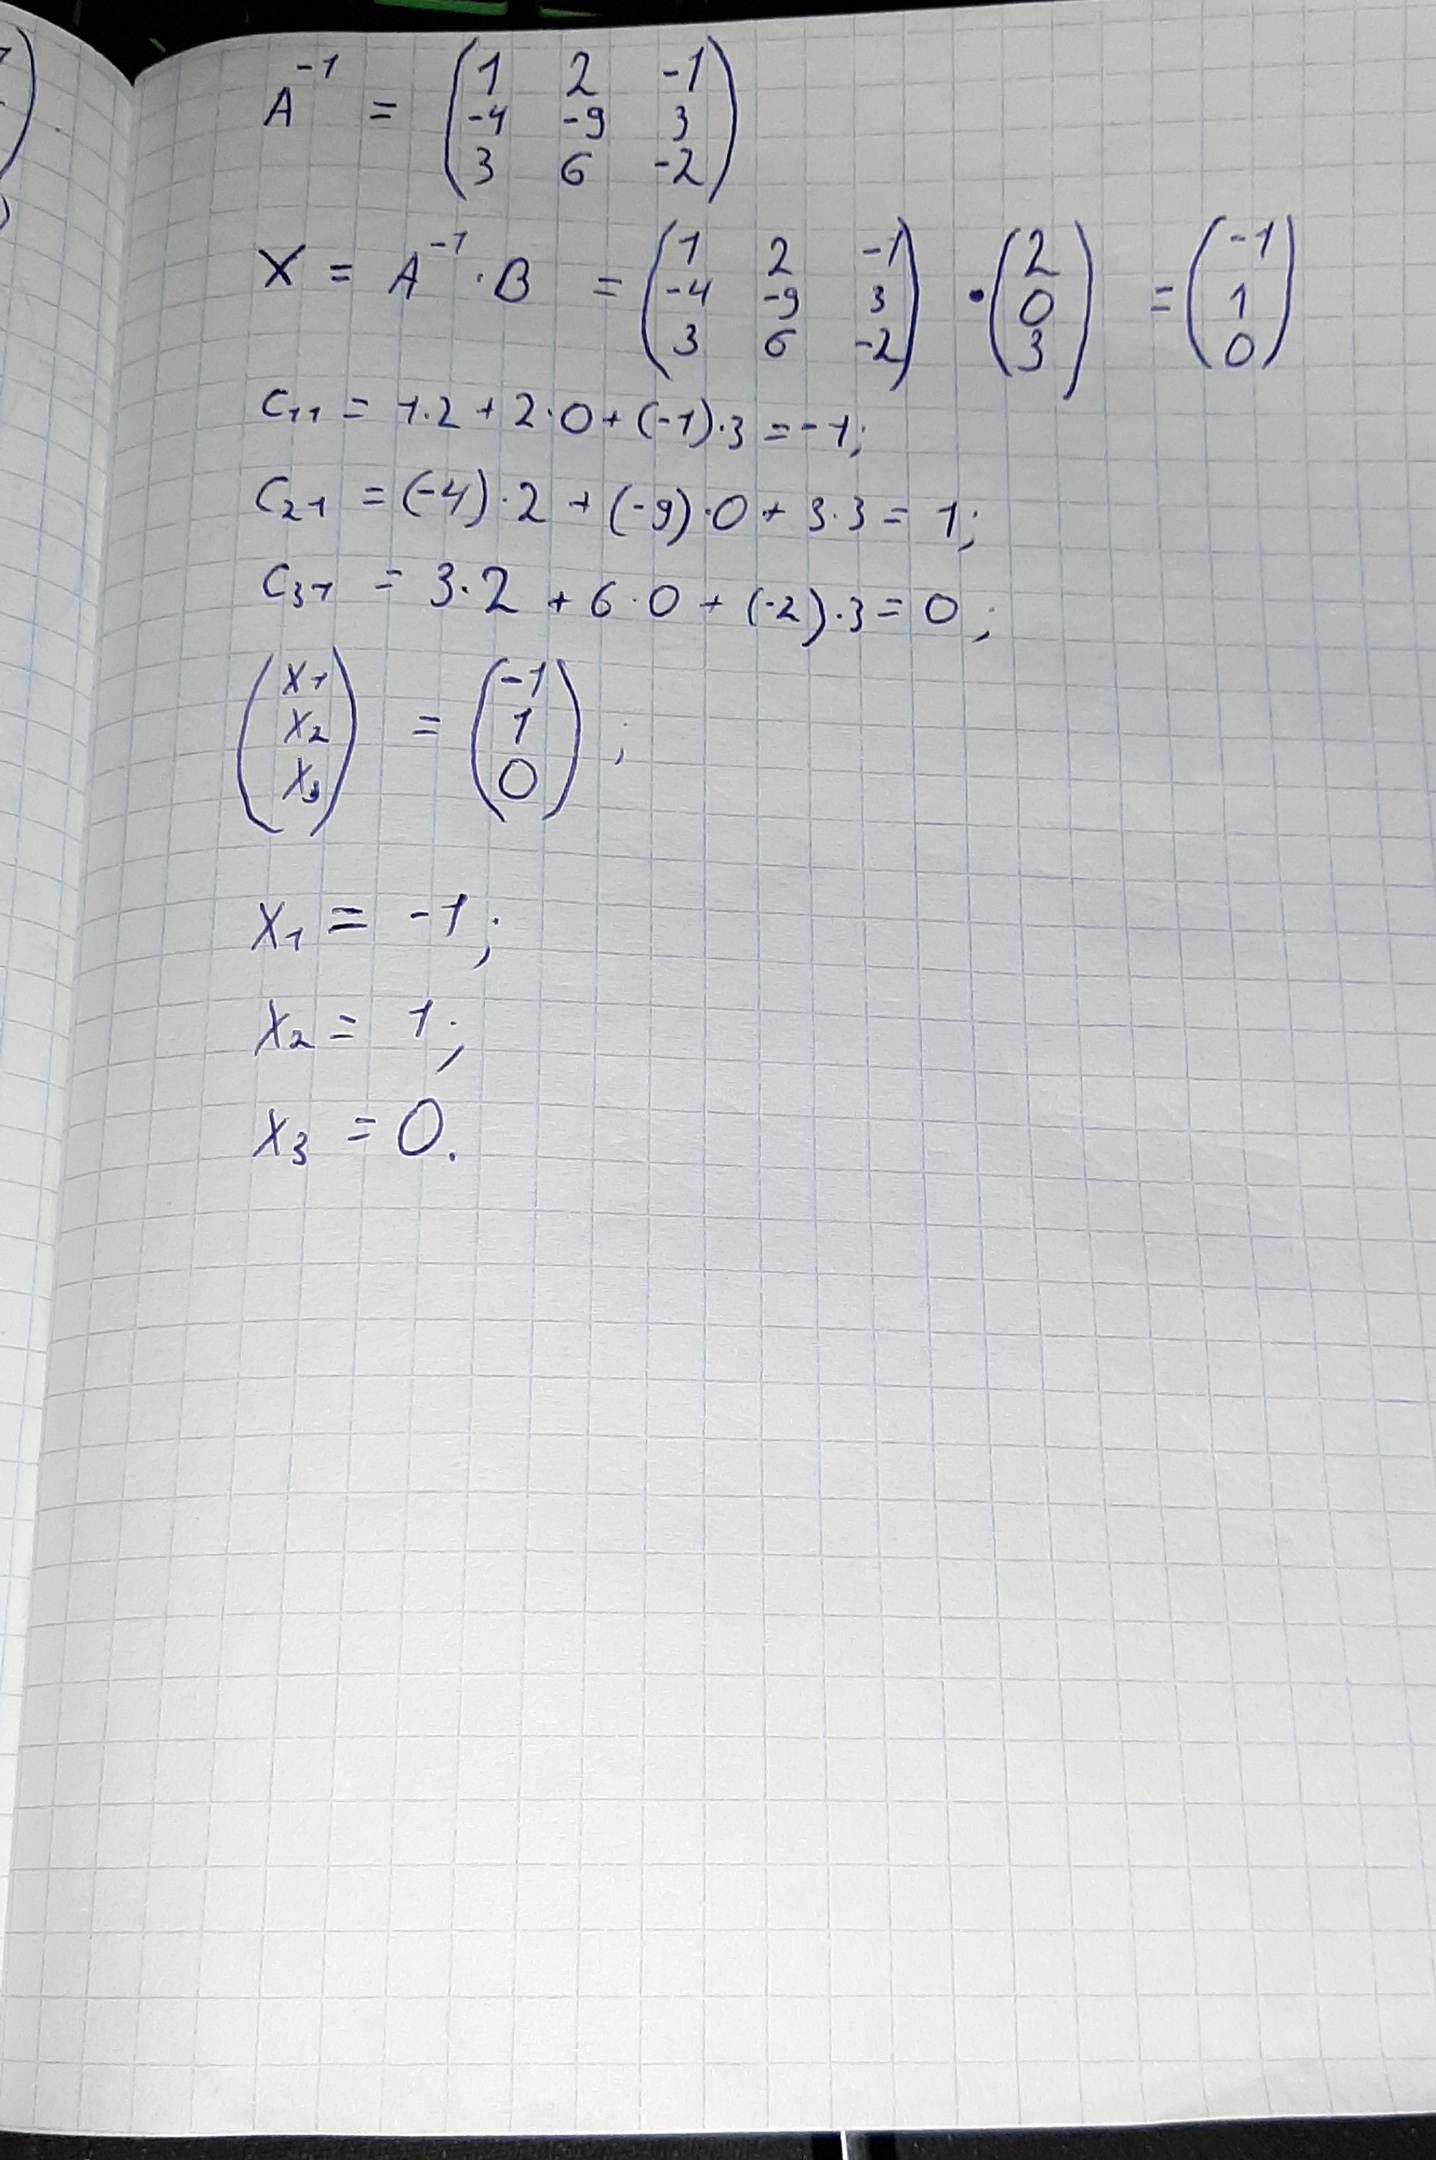 A⁻¹ = (1 2 -1
-4 -9 3
3 6 -2)
X = A⁻¹ · B = (1 2 -1
-4 -9 3
3 6 -2) · (2
0
3) = (-1
1
0)
C₁₁ = 1·2 + 2·0 + (-1)·3 = -1;
C₂₁ = (-4)·2 + (-9)·0 + 3·3 = 1;
C₃₁ = 3·2 + 6·0 + (-2)·3 = 0;
(x₁
x₂
x₃) = (-1
1
0);
x₁ = -1;
x₂ = 1;
x₃ = 0.